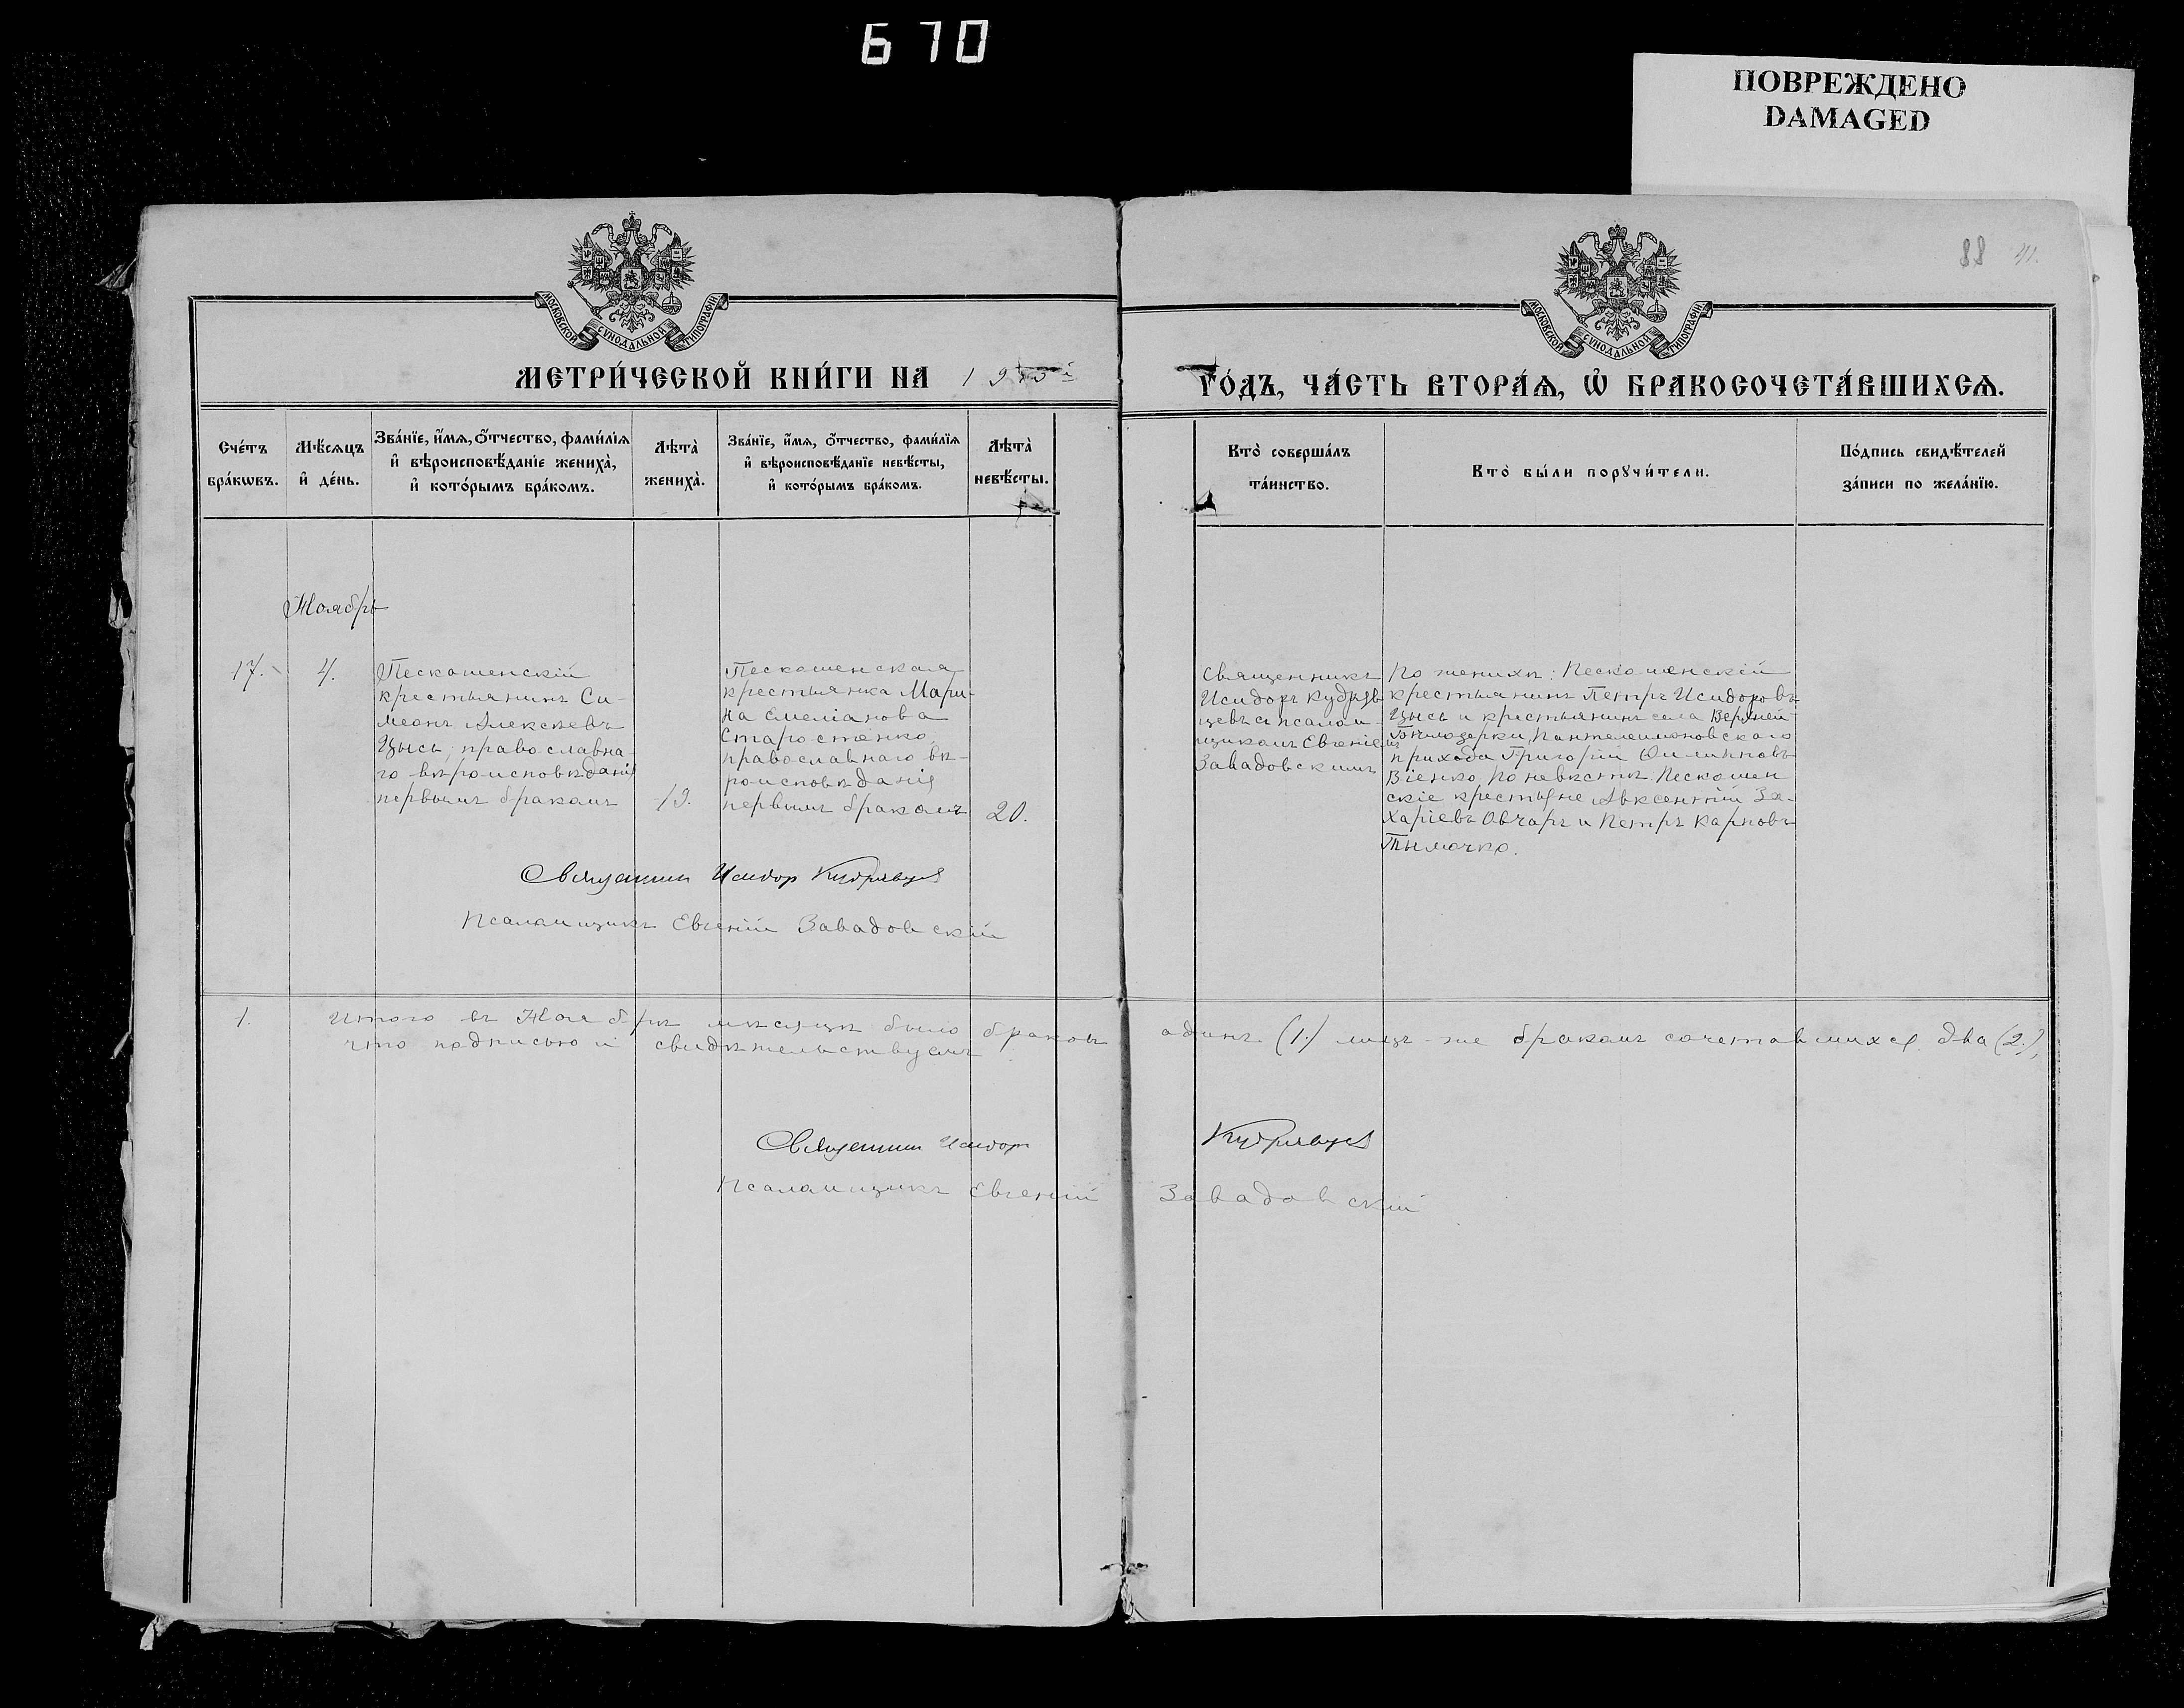 670
ПОВРЕЖДЕНО
DAMAGED
88 41.
МОСКОВСКОЙ СѴНОДАЛЬНОЙ ТИПОГРАФІИ
МОСКОВСКОЙ СѴНОДАЛЬНОЙ ТИПОГРАФІИ
МЕТРИ́ЧЕСКОЙ КНИ́ГИ НА 19
ГО́ДЪ, ЧА́СТЬ ВТОРА́Ѧ, Ѡ҆ БРАКОСОЧЕТА́ВШИХСѦ.
Сче́тъ бра́кѡвъ.
Мѣ́сѧцъ и҆ де́нь.
Зва́нїе, и҆́мѧ, ѻ҆́тчество, фами́лїѧ
и҆ вѣроисповѣ́данїе жениха̀,
и҆ кото́рымъ бра́комъ.
Лѣта̀ жениха̀.
Зва́нїе, и҆́мѧ, ѻ҆́тчество, фами́лїѧ
и҆ вѣроисповѣ́данїе невѣ́сты,
и҆ кото́рымъ бра́комъ.
Лѣта̀ невѣ́сты.
Кто̀ соверша́лъ
та́инство.
Кто̀ бы́ли порꙋчи́тели.
По́дпись свидѣ́телей
за́писи по жела́нїю.
Ноябрь
17.
4.
Пескошенскій
крестьянинъ Си-
меонъ Алексѣевъ
Цысь, православна-
го вѣроисповѣданія
первымъ бракомъ
19.
Пескошенская
крестьянка Мари-
на Емеліанова
Старостенко,
православнаго вѣ-
роисповѣданія
первымъ бракомъ
20.
Священникъ
Исидоръ Кудряв-
цевъ съ псалом-
щикомъ Евгеніемъ
Завадовскимъ
По женихѣ: Пескошенскій
крестьянинъ Петръ Исидоровъ
Цысь и крестьянинъ села Верхней
Бѣлозерки, Пантелеимоновскаго
прихода Григорій Филипповъ
Віенко, по невѣстѣ Пескошен
скіе крестьяне Авксентій За-
харіевъ Овчаръ и Петръ Карповъ
Тымочко.
Священник Исидор Кудрявцев
Псаломщикъ Евгеній Завадовскій
1.
Итого въ Ноябрѣ мѣсяцѣ было браковъ одинъ (1.) лицъ-же бракомъ сочетавшихся два (2.),
что подписью и свидѣтельствуемъ
Священник Исидор Кудрявцев
Псаломщикъ Евгеній Завадовскій